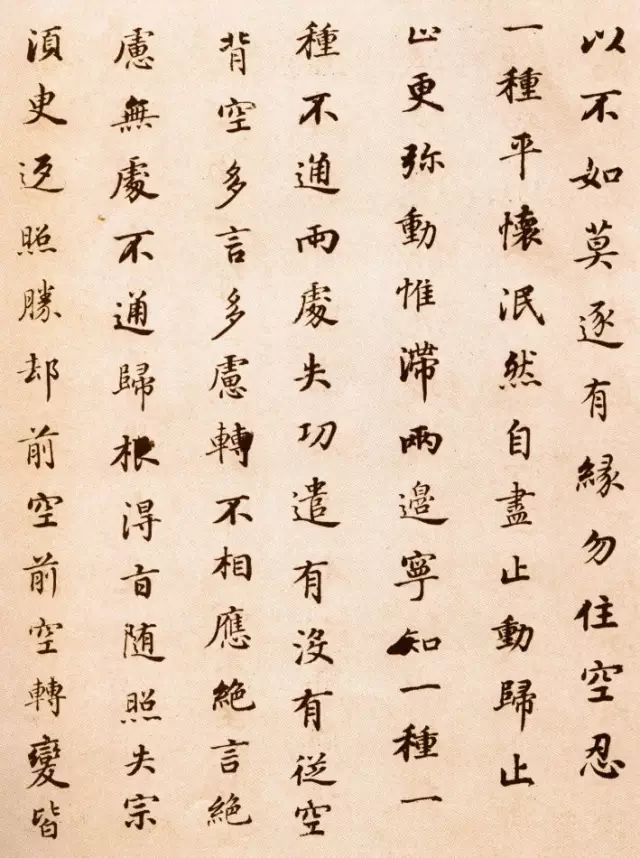 以不如莫逐有緣勿住空忍
一種平懷泯然自盡止動歸止
止更弥動惟滞兩邊寧知一種一
種不通兩處失功遣有沒有從空
背空多言多慮轉不相應絶言絶
慮無處不通歸根得旨随照失宗
須臾返照勝却前空前空轉變皆